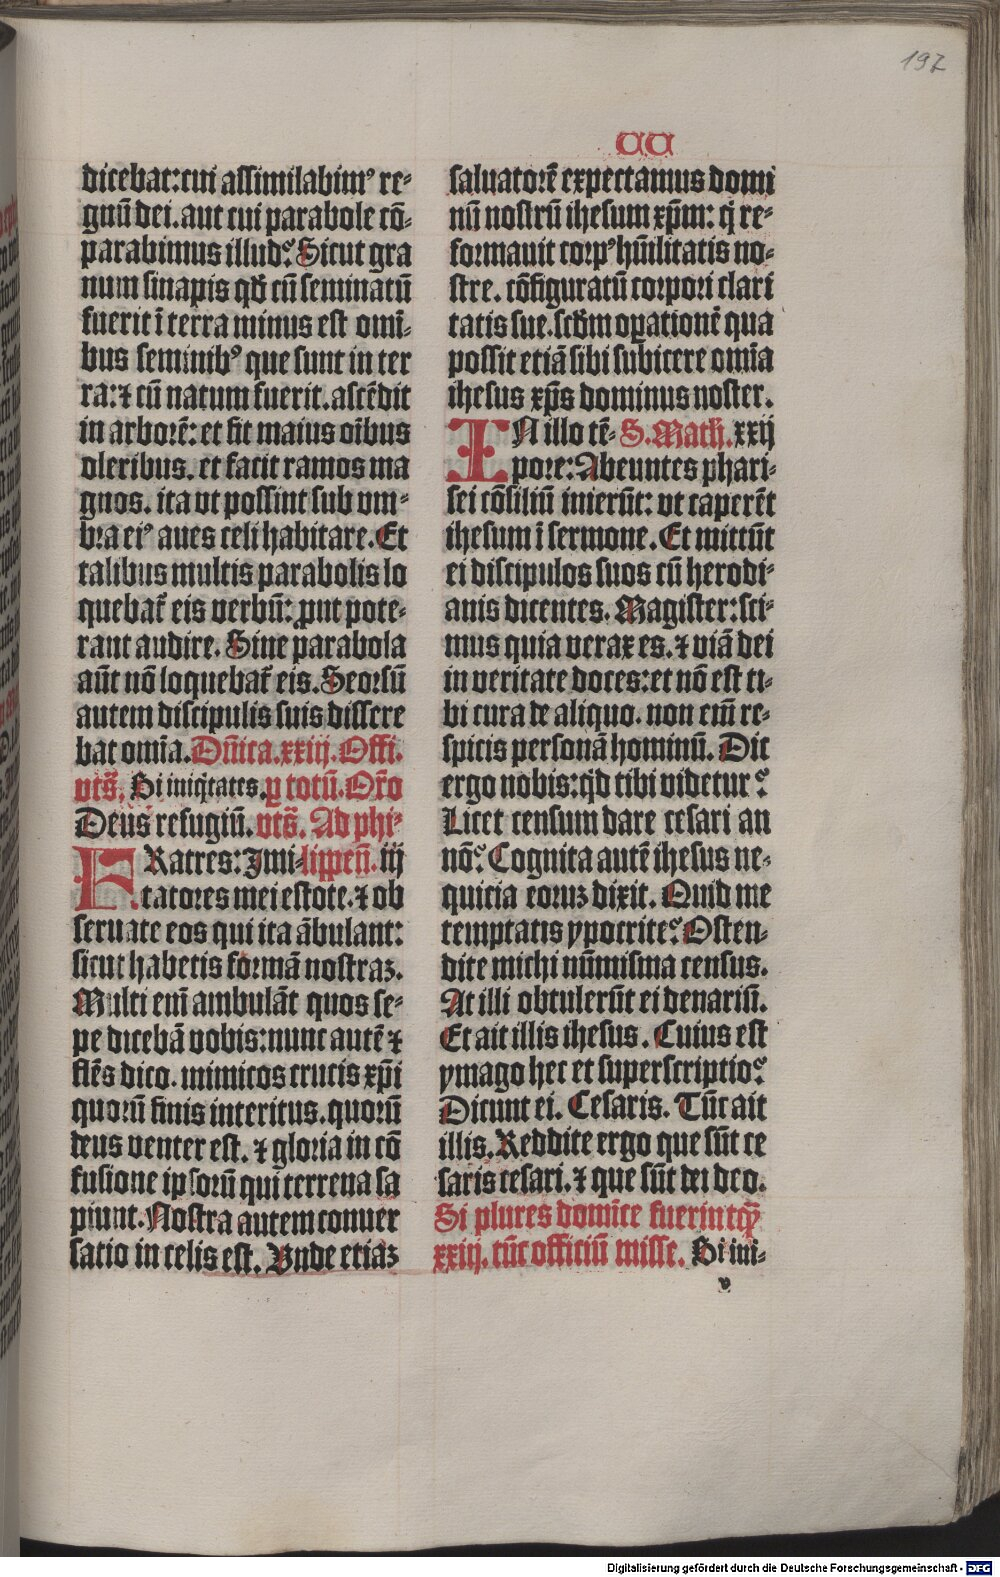 197
aa
dicebat: cui assimilabimꝰ re-
gnū dei. aut cui parabole cō-
parabimus illud? Sicut gra
num sinapis qd̄ cū seminatū
fuerit ī terra minus est omī-
bus seminibꝰ que sunt in ter
ra: ⁊ cū natum fuerit. ascēdit
in arborē: et fit maius oībus
oleribus. et facit ramos ma
gnos. ita vt possint sub vm-
bra eiꝰ aues celi habitare. Et
talibus multis parabolis lo
quebat̄ eis verbū: ꝓut pote-
rant audire. Sine parabola
aūt nō loquebat̄ eis. Seorsū
autem discipulis suis dissere
bat omīa. Dn̄ica. xxiij. Offi.
vts̄. Si iniq̇tates. ꝑ totū. Or̄o
Deus refugiū. vts̄. Ad phi-
FRatres: Imi-lippen̄. iij
tatores mei estote. ⁊ ob
seruate eos qui ita ābulant:
sicut habetis formā nostraꝫ.
Multi enī ambulāt quos se-
pe dicebā vobis: nunc autē ⁊
flēs dico. inimicos crucis xp̄i
quorū finis interitus. quorū
deus venter est. ⁊ gloria in cō
fusione ipsorū qui terrena sa
piunt. Nostra autem conuer
satio in celis est. Vnde etiaꝫ
saluatorē expectamus domi
nū nostrū ihesum xp̄m: q̇ re-
formauit corpꝰ hūilitatis no-
stre. cōfiguratū corpori clari
tatis sue. scd̄m oꝑationē qua
possit etiā sibi subicere omīa
ihesus xp̄s dominus noster.
IN illo tē- S. Math̄. xxij
pore: Abeuntes phari-
sei cōsiliū inierūt: vt caperēt
ihesum ī sermone. Et mittūt
ei discipulos suos cū herodi-
anis dicentes. Magister: sci-
mus quia verax es. ⁊ viā dei
in veritate doces: et nō est ti-
bi cura de aliquo. non enī re-
spicis personā hominū. Dic
ergo nobis: qd̄ tibi videtur?
Licet censum dare cesari an
nō? Cognita autē ihesus ne-
quicia eoruꝫ dixit. Quid me
temptatis ypocrite? Osten-
dite michi nūmisma census.
At illi obtulerūt ei denariū.
Et ait illis ihesus. Cuius est
ymago hec et superscriptio?
Dicunt ei. Cesaris. Tūc ait
illis. Reddite ergo que sūt ce
saris cesari. ⁊ que sūt dei deo.
Si plures domīce fuerint qꝫ
xxiij. tūc officiū misse. Si ini-
v
Digitalisierung gefördert durch die Deutsche Forschungsgemeinschaft - DFG